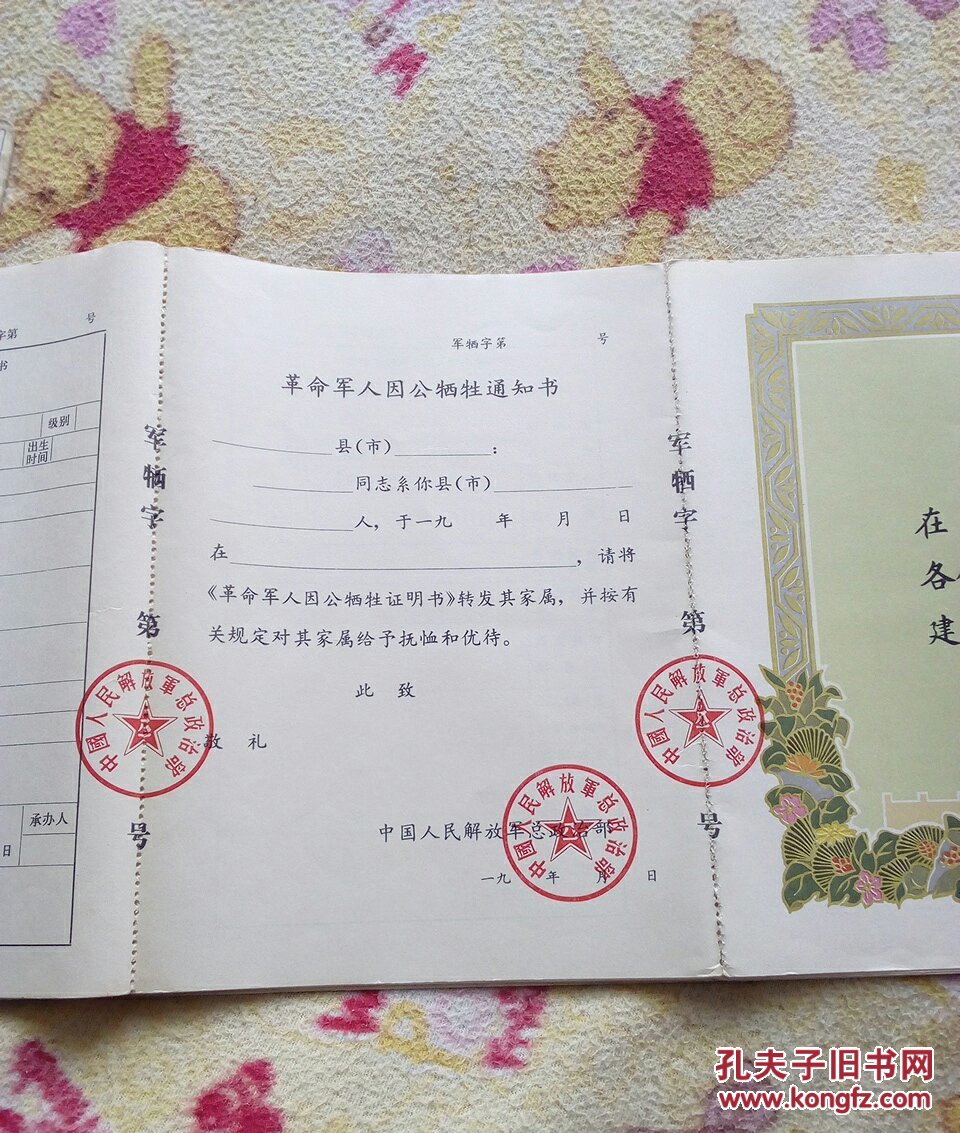 字第 号
书
级别
出生
时间
承办人
日
军牺字 第 号
军牺字第 号
革命军人因公牺牲通知书
县(市) :
同志系你县(市)
人，于一九 年 月 日
在 ，请将
《革命军人因公牺牲证明书》转发其家属，并按有
关规定对其家属给予抚恤和优待。
此 致
敬 礼
中国人民解放军总政治部
一九 年 月 日
中國人民解放軍总政治部
中國人民解放軍总政治部
中國人民解放軍总政治部
军牺字 第 号
在
各
建
孔夫子旧书网
www.kongfz.com